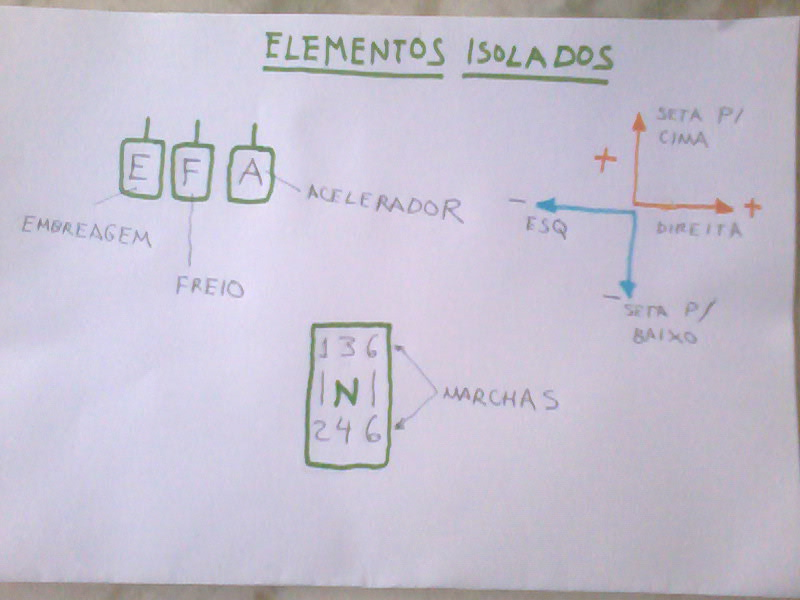 ELEMENTOS ISOLADOS
E F A
EMBREAGEM
FREIO
ACELERADOR
+
SETA P/
CIMA
-
ESQ
DIREITA
+
-
SETA P/
BAIXO
1 3 6
| N |
2 4 6
MARCHAS